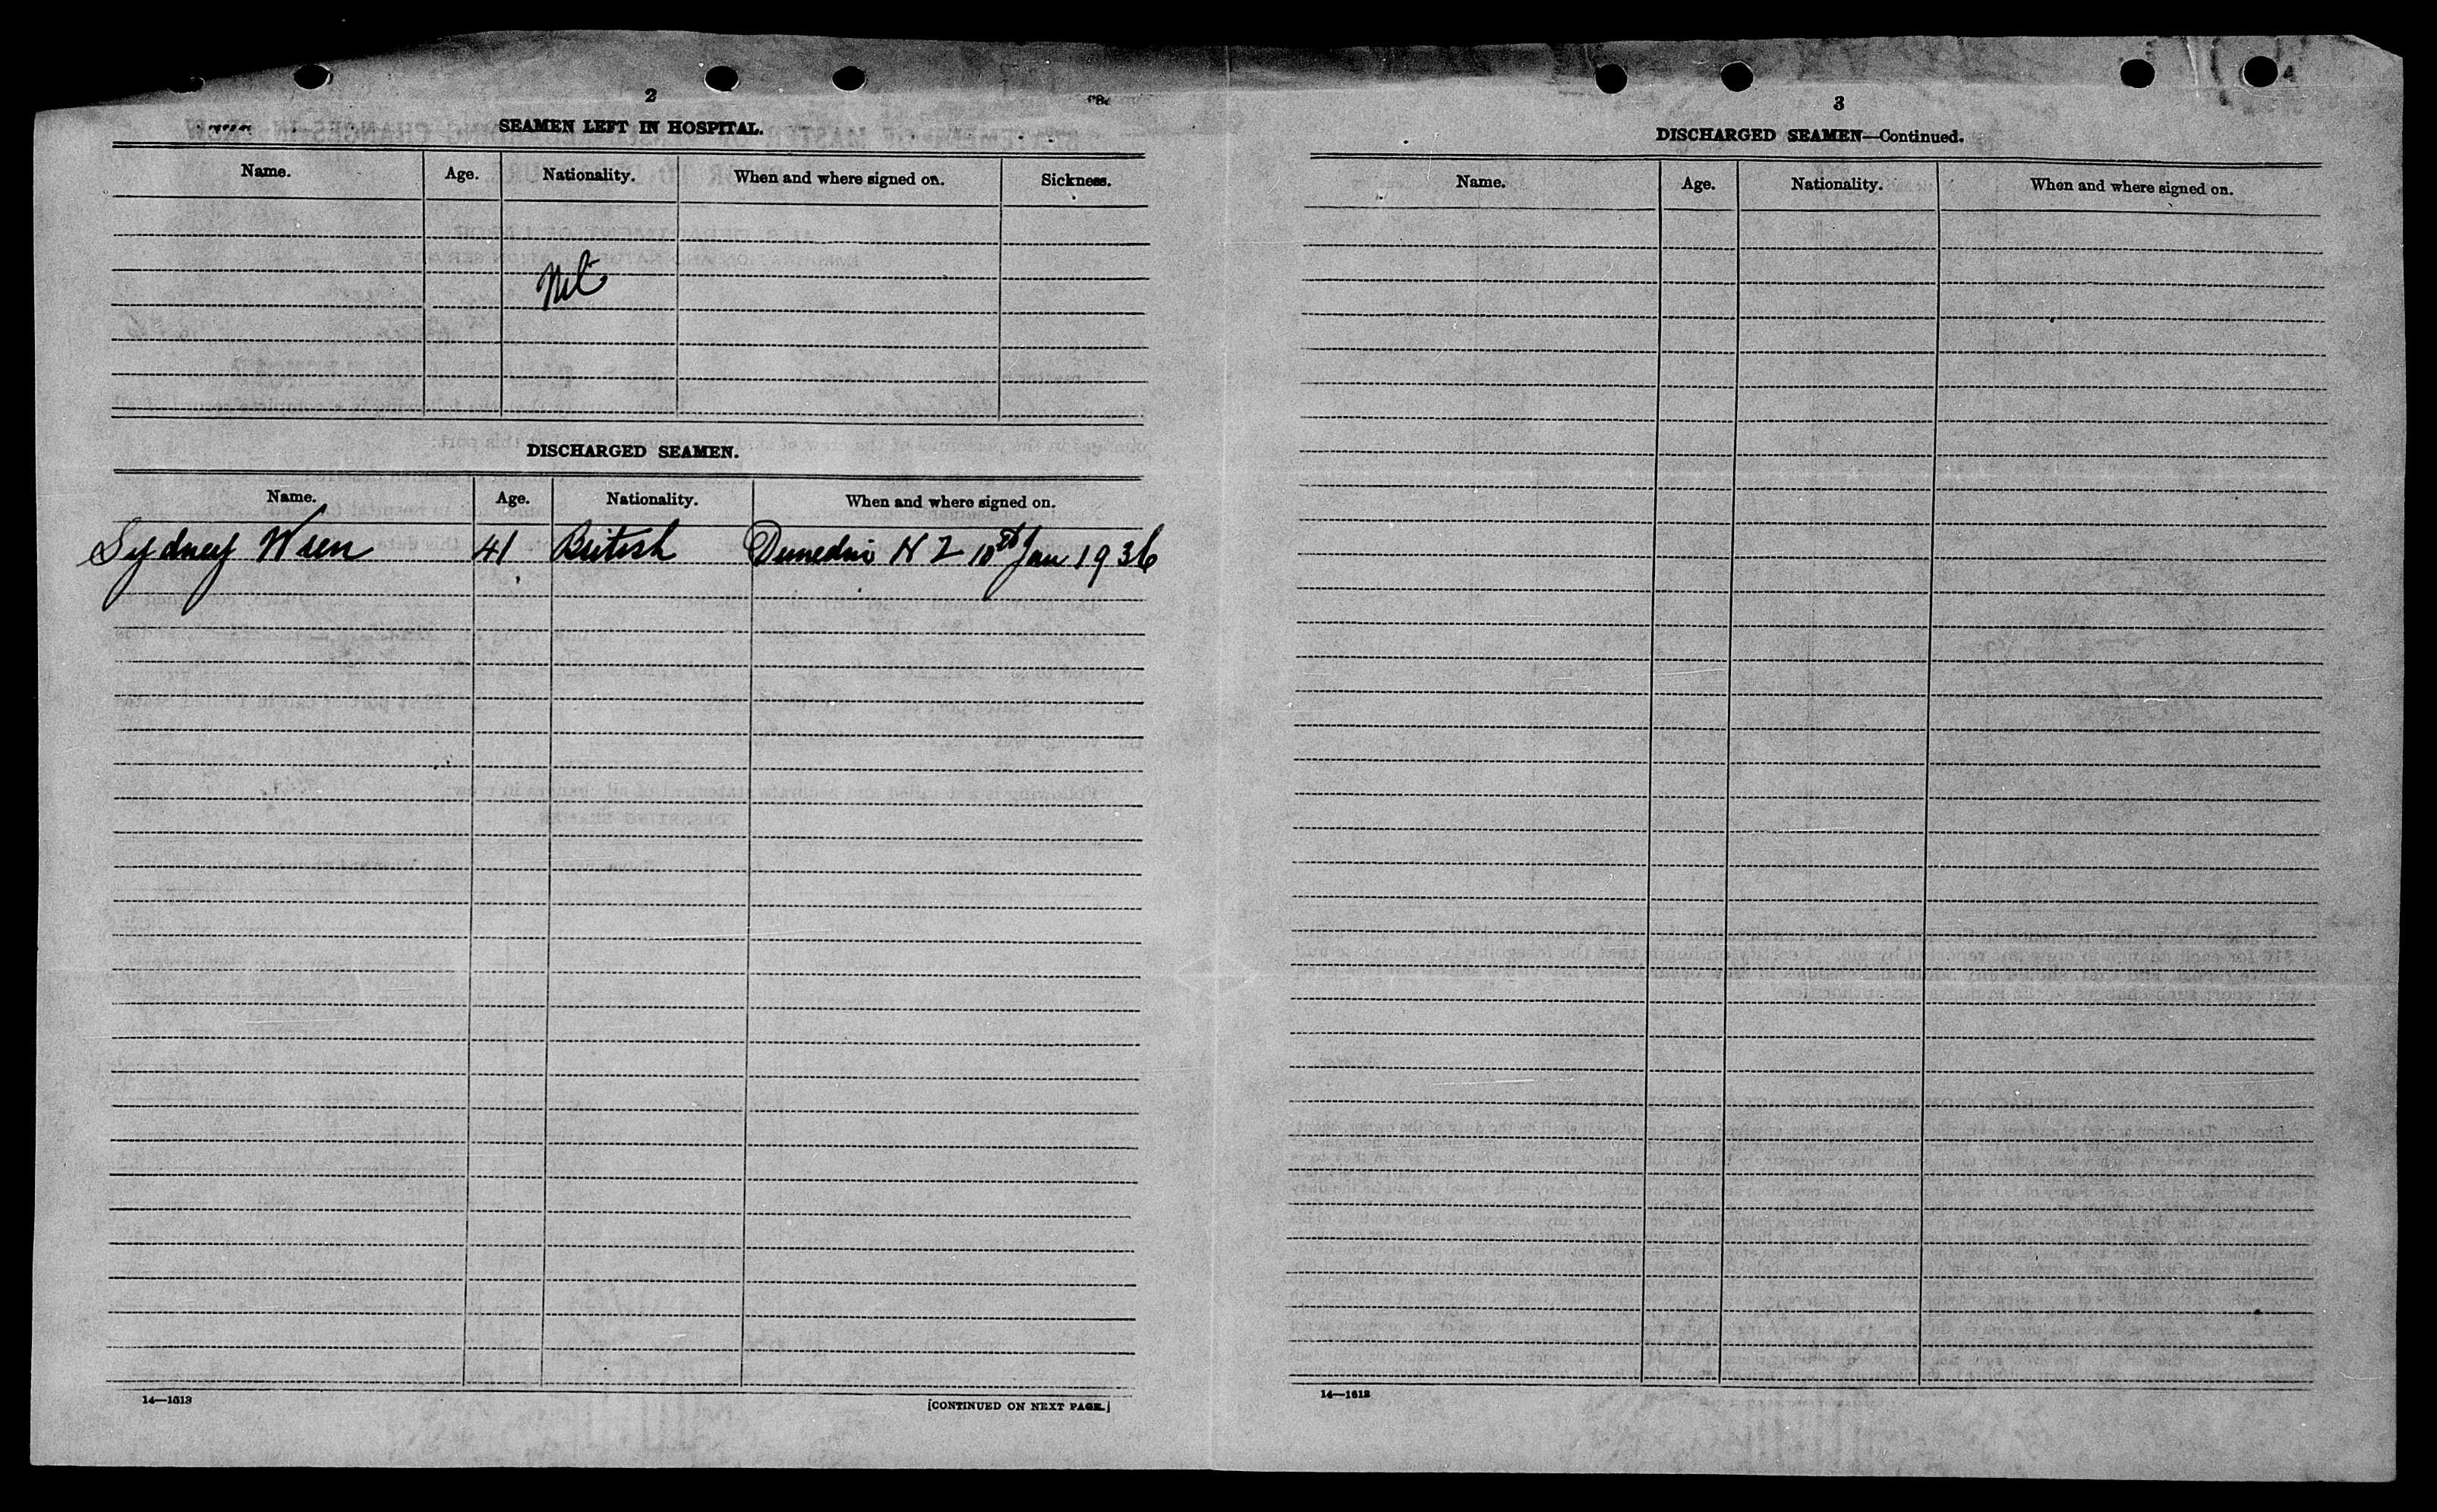 2
SEAMEN LEFT IN HOSPITAL.
Name. Age. Nationality. When and where signed on. Sickness.
Nil
DISCHARGED SEAMEN.
Name. Age. Nationality. When and where signed on.
Sydney Wren 41 British Dunedin N Z 10th Jan 1936
14—1613
[CONTINUED ON NEXT PAGE.]
3
DISCHARGED SEAMEN—Continued.
Name. Age. Nationality. When and where signed on.
14—1613